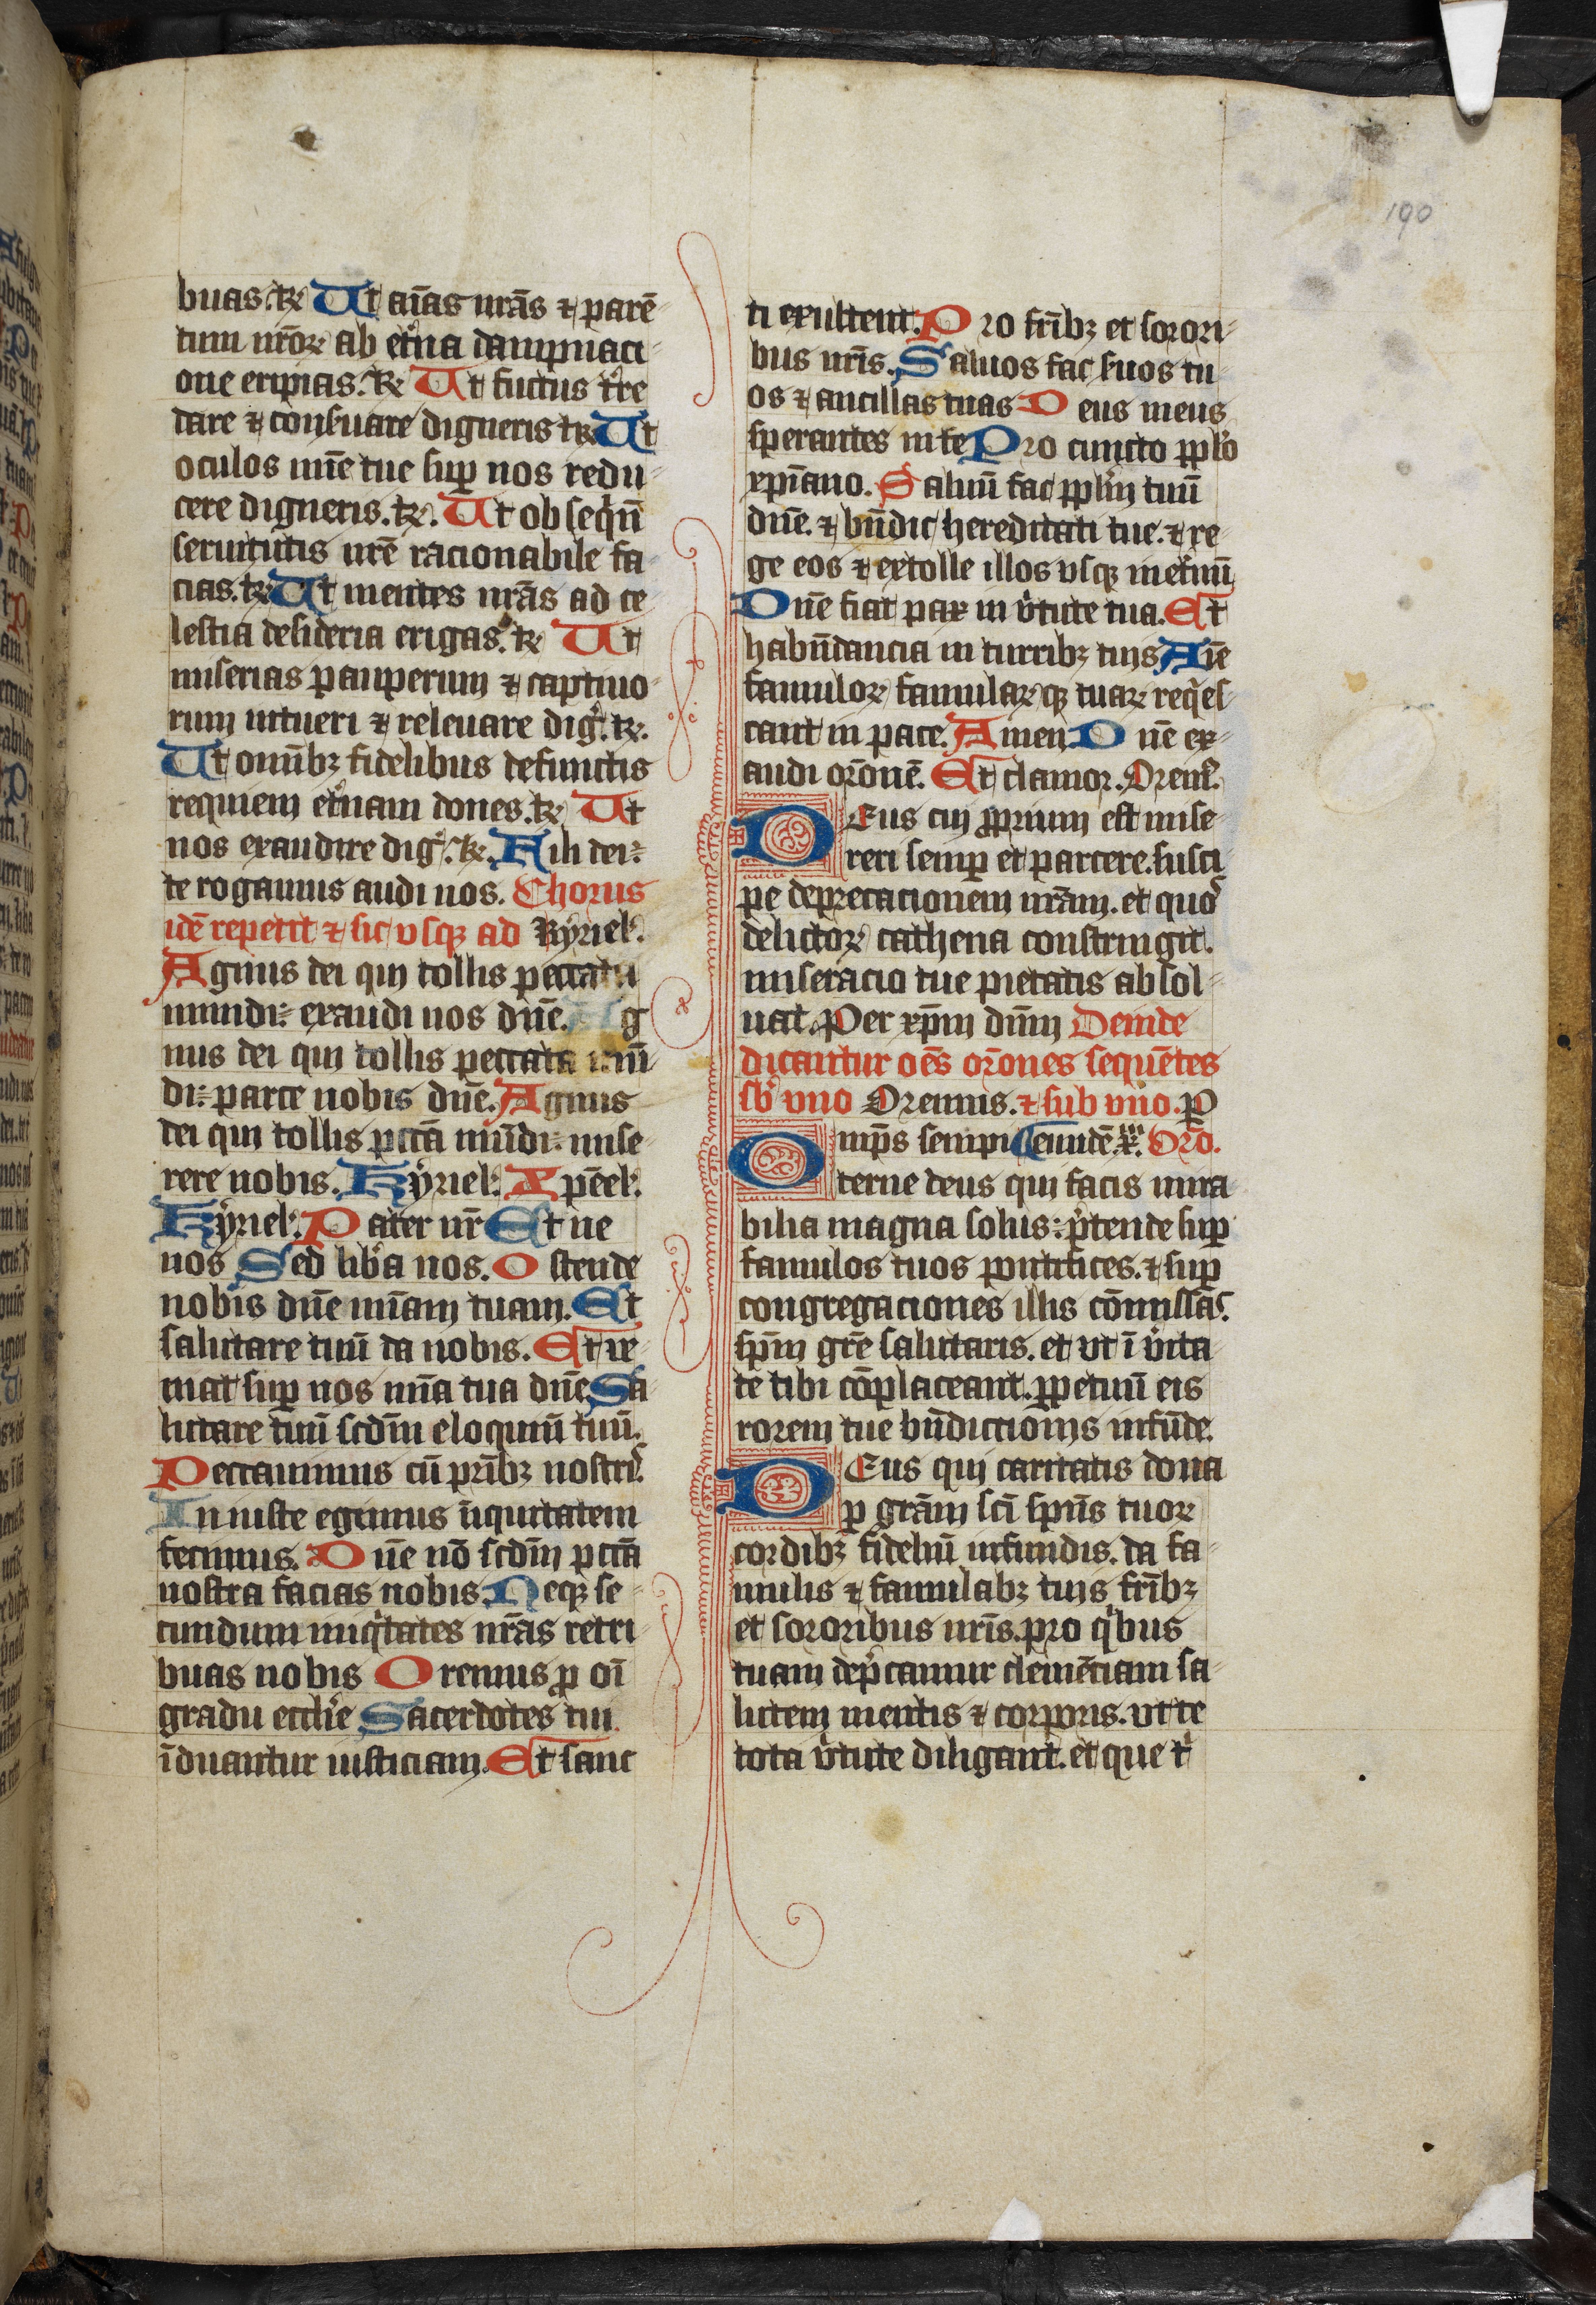 190
buas. te Ut aīas nrās ⁊ parē
tum nrōꝝ ab et̓na dampnaci
one eripias. te Ut fuctus t̓re
dare ⁊ conẜuare digneris te Ut
oculos mīe tue suꝑ nos redu
cere digneris. te. Ut obseqͥū
seruitutis nrē racionabile fa
cias. te Ut mentes nrās ad ce
lestia desideria erigas. te Ut
miserias pauperum ⁊ captiuo
rum intueri ⁊ releuare dig̓. te.
Ut omībꝫ fidelibus defunctis
requiem et̓nam dones. te Ut
nos exaudire dig̓. te. Fili dei
te rogamus audi nos. Chorus
idē repetit ⁊ sic vsqꝫ ad Kyriel̓.
Agnus dei qui tollis peccata
mundi: exaudi nos dn̄e. Ag
nus dei qui tollis peccata mū
di: parce nobis dn̄e. Agnus
dei qui tollis pctā mūdi: mise
rere nobis. Kyriel̓. Xp̄eel̓.
Kyriel̓. Pater nr̄ Et ne
nos Sed lib̓a nos. Ostende
nobis dn̄e mīam tuam. Et
salutare tuū da nobis. Et ve
niat suꝑ nos mīa tua dn̄e Sa
lutare tuū scdm̄ eloquiū tuū.
Peccauimus cū prībꝫ nostri̓.
Iniuste egimus īiquitatem
fecimus. Dn̄e nō scdm̄ pctā
nostra facias nobis. Neqꝫ se
cundum iniqͥtates nrās retri
buas nobis Oremus ꝓ oī
gradu eccl̓ie Sacerdotes tui
īduantur iusticiam. Et sanc
ti exultent. Pro frībꝫ et sorori
bus nrīs. Saluos fac ẜuos tu
os ⁊ ancillas tuas Deus meus
sperantes in te Pro cuncto pplo
xpīano. Saluū fac pplm̄ tuū
dn̄e. ⁊ bn̄dic hereditati tue. ⁊ re
ge eos ⁊ extolle illos vsqꝫ in et̓nū
Dn̄e fiat pax in v̓tute tua. Et
habūdancia in turribꝫ tuis Aīe
famuloꝝ famularꝝqꝫ tuaꝝ reqͥes
cant in pace. Amen Dn̄e ex
audi orōnē. Et clamor. Orem̓.
DEus cui ꝓprium est mise
reri semꝑ et parcere. susci
pe deprecacionem nrām. et quo̓
delictoꝝ cathena constringit.
miseracio tue pietatis absol
uat. Per xp̄m dn̄m Deinde
dicantur oēs orōnes sequētes
sb̓ vno Oremus. ⁊ sub vno. ꝑ
Omp̄s sempi Orō.
terne deus qui facis mira
bilia magna solus: p̓tende suꝑ
famulos tuos pontifices. ⁊ suꝑ
congregaciones illis cōmissas̓.
spm̄ grē salutaris. et vt ī v̓ita
te tibi cōplaceant. ꝑpetuū eis
rorem tue bn̄diccionis infūde.
DEus qui caritatis dona
ꝑ grām sc̄i spūs tuoꝝ
cordibꝫ fideliū infundis. da fa
mulis ⁊ famulabꝫ tuis frībꝫ
et sororibus nrīs. pro qͥbus
tuam dep̓camur clemēciam sa
lutem mentis ⁊ corporis. vt te
tota v̓tute diligant. et que t̓